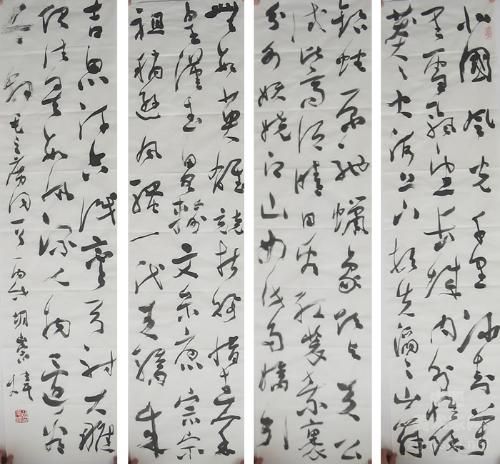 北國風光千里冰封萬
里雪飘望長城内外惟馀
莽莽大河上下頓失滔滔山舞
銀蛇原馳蠟象欲与天公
试比高须晴日看红装素裹
分外妖娆江山如此多娇引
無数英雄競折腰惜秦
皇漢武略輸文采唐宗宋
祖稍逊風騷一代天驕成
吉思汗只識彎弓射大雕
俱往矣数風流人物還看
今朝 毛主席词一首